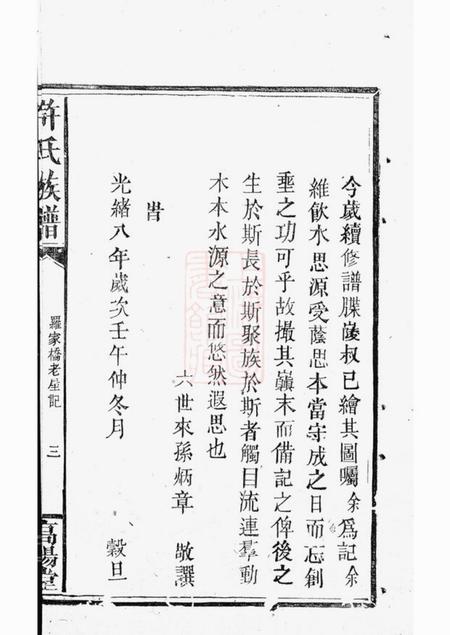 今歲續修譜牒陵叔已繪其圖囑余爲記余
維飲水思源受蔭思本當守成之日而忘創
垂之功可乎故撮其巔末而備記之俾後之
生於斯長於斯聚族於斯者觸目流連羣動
木本水源之意而悠然遐思也
六世來孫炳章 敬譔
旹
光緒八年歲次壬午仲冬月 穀旦
許氏族譜
羅家橋老屋記
三
高陽堂